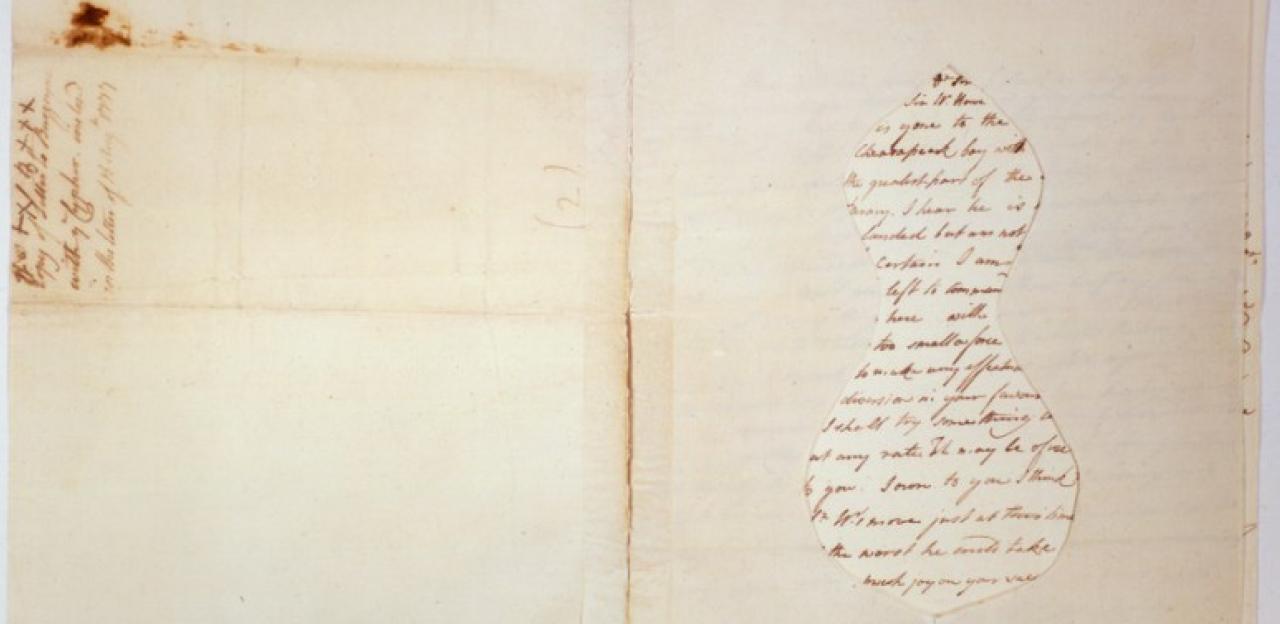 Sir W. Howe
is gone to the
Chesapeak bay with
the greatest part of the
army. I hear he is
landed but am not
certain. I am
left to command
here with
too small a force
to make any effectual
diversion in your favour
I shall try something
at any rate. It may be of use
to you. I own to you I think
Sr W's move just at this time
the worst he could take
much joy on your
(2)
with Cypher
in the letter of